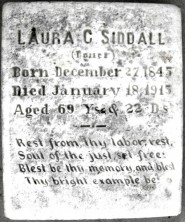 LAURA C SIDDALL
Born December 27, 1843
Died January 18, 1913
Aged 69 Ys & 22 Ds
Rest from thy labor, rest,
Soul of the just, set free!
Blest be thy memory, and blest
Thy bright example be!